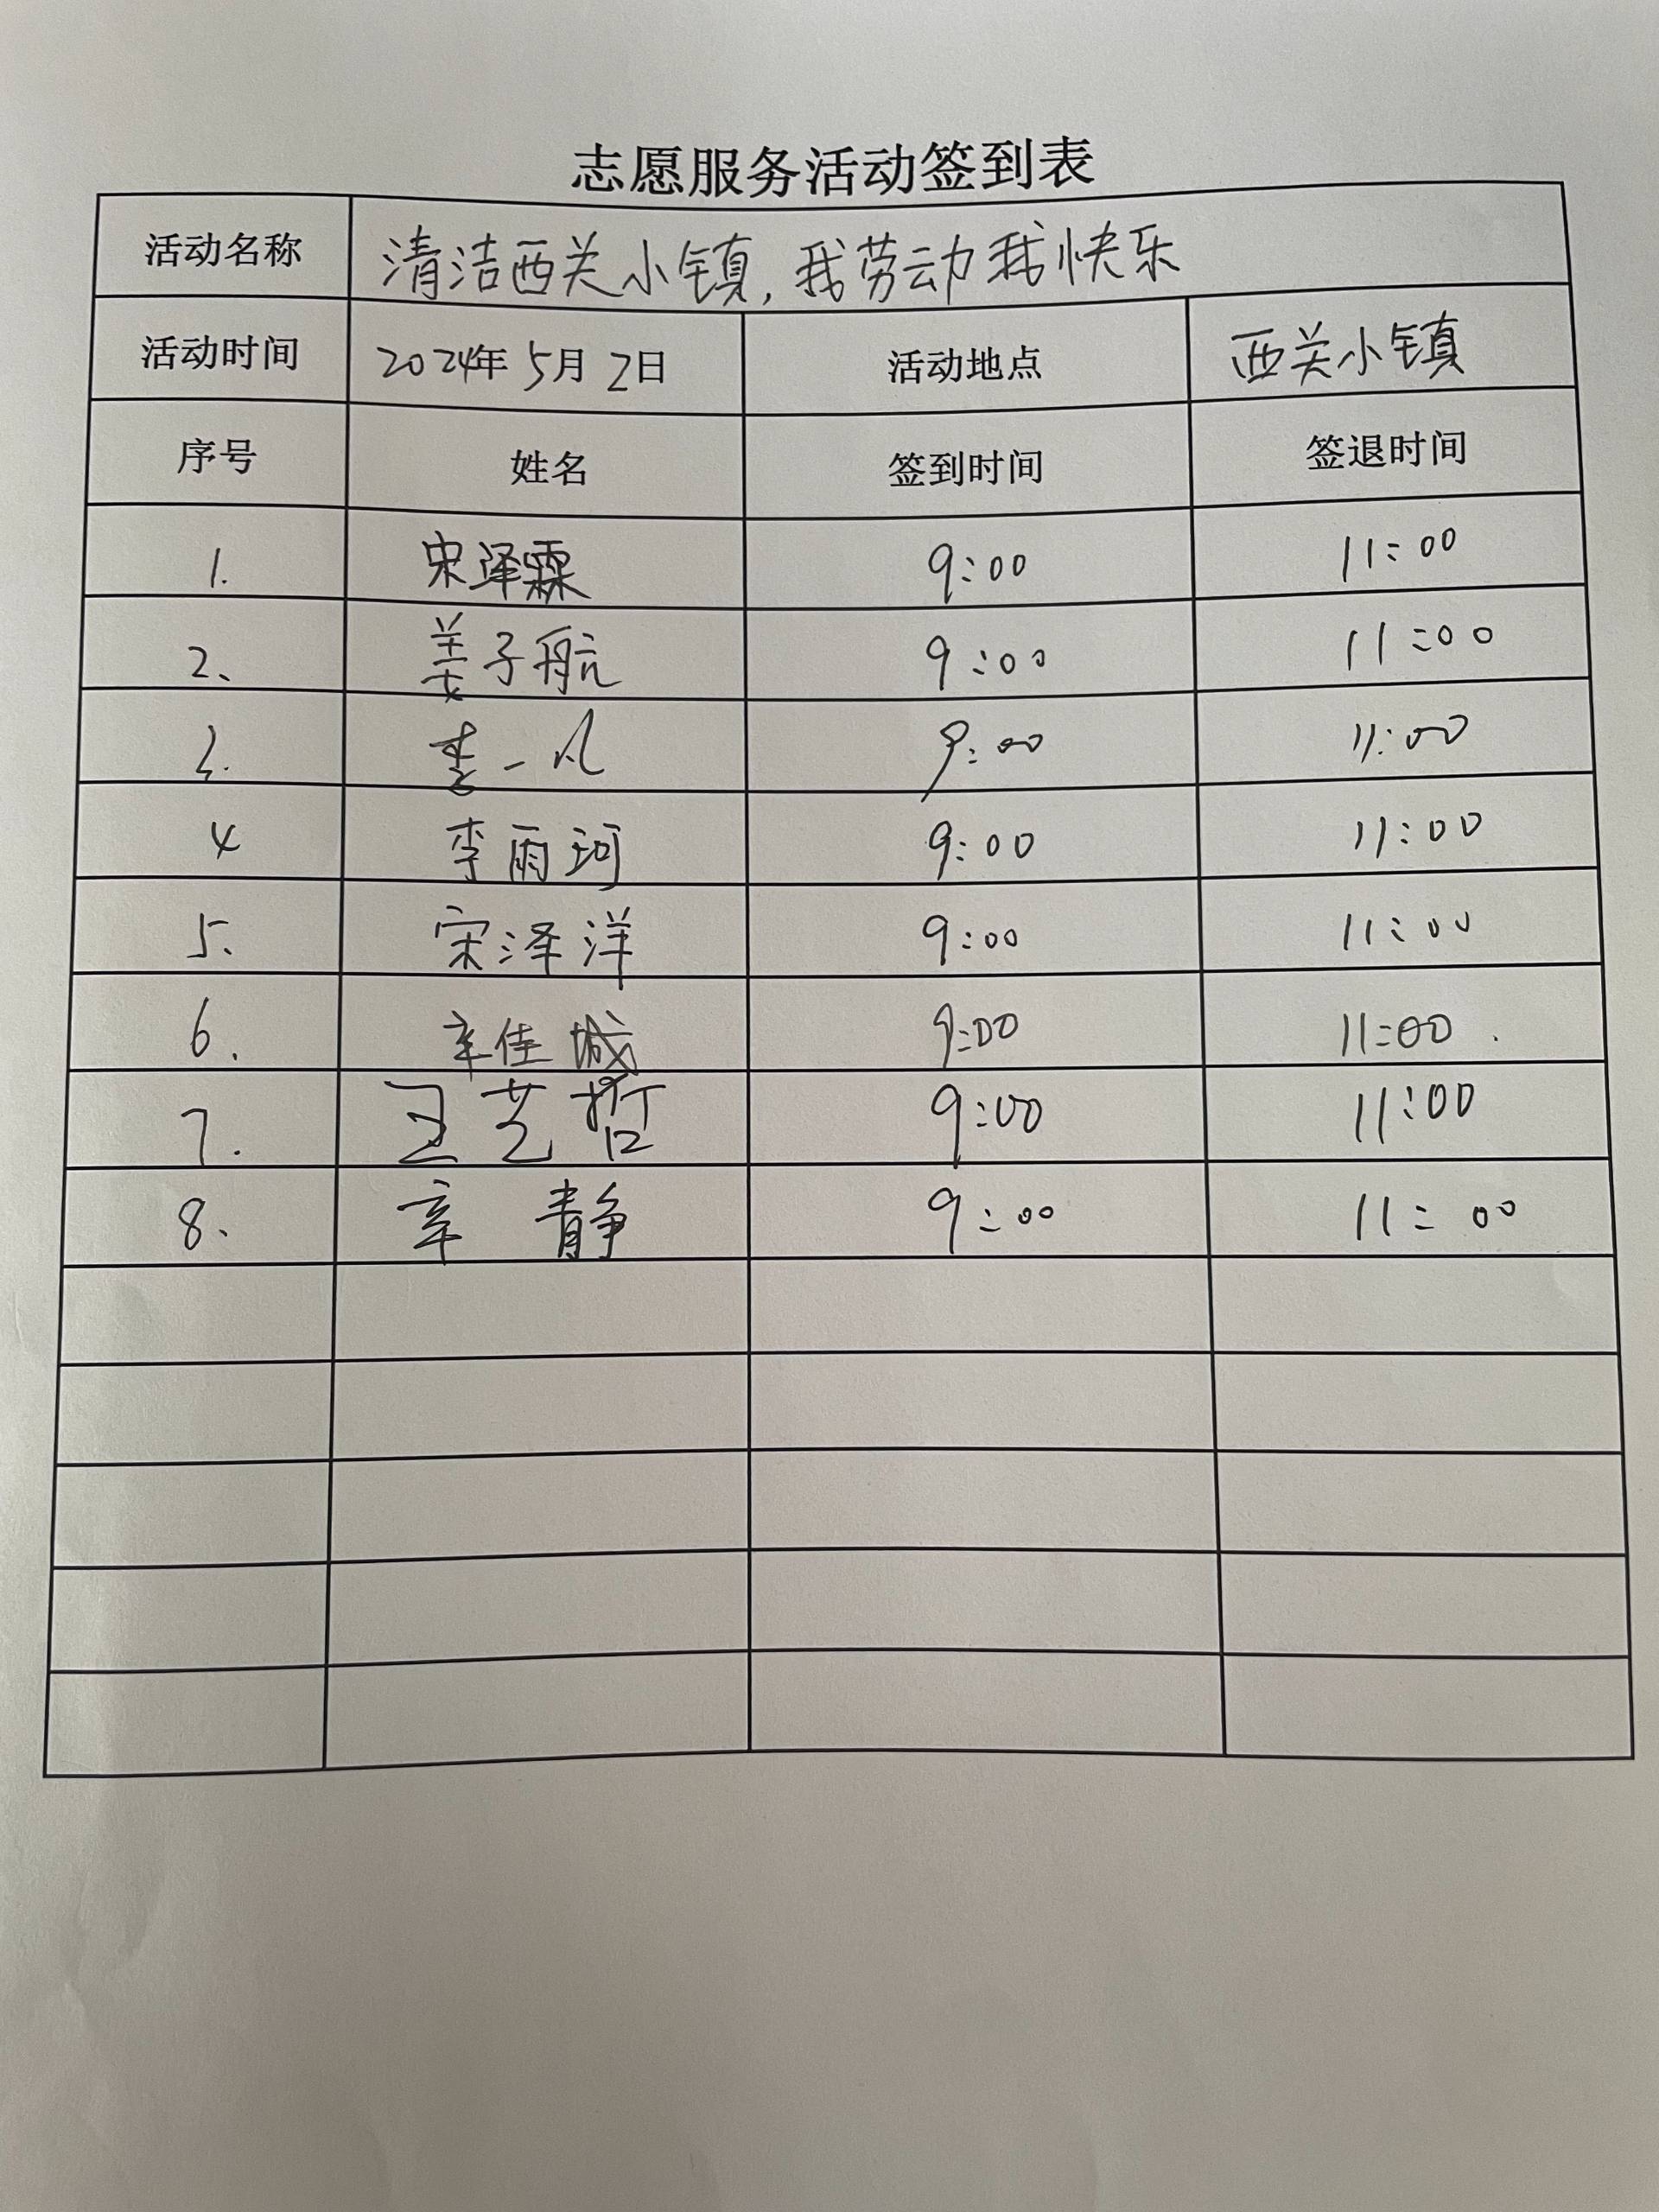 志愿服务活动签到表
活动名称 清洁西关小镇,我劳动我快乐
活动时间 2024年5月2日 活动地点 西关小镇
序号 姓名 签到时间 签退时间
1. 宋泽霖 9:00 11:00
2、 姜子航 9:00 11:00
3. 李一凡 9:00 11:00
4 李雨珂 9:00 11:00
5、 宋泽洋 9:00 11:00
6. 辛佳城 9:00 11:00
7. 王艺哲 9:00 11:00
8、 辛静 9:00 11:00